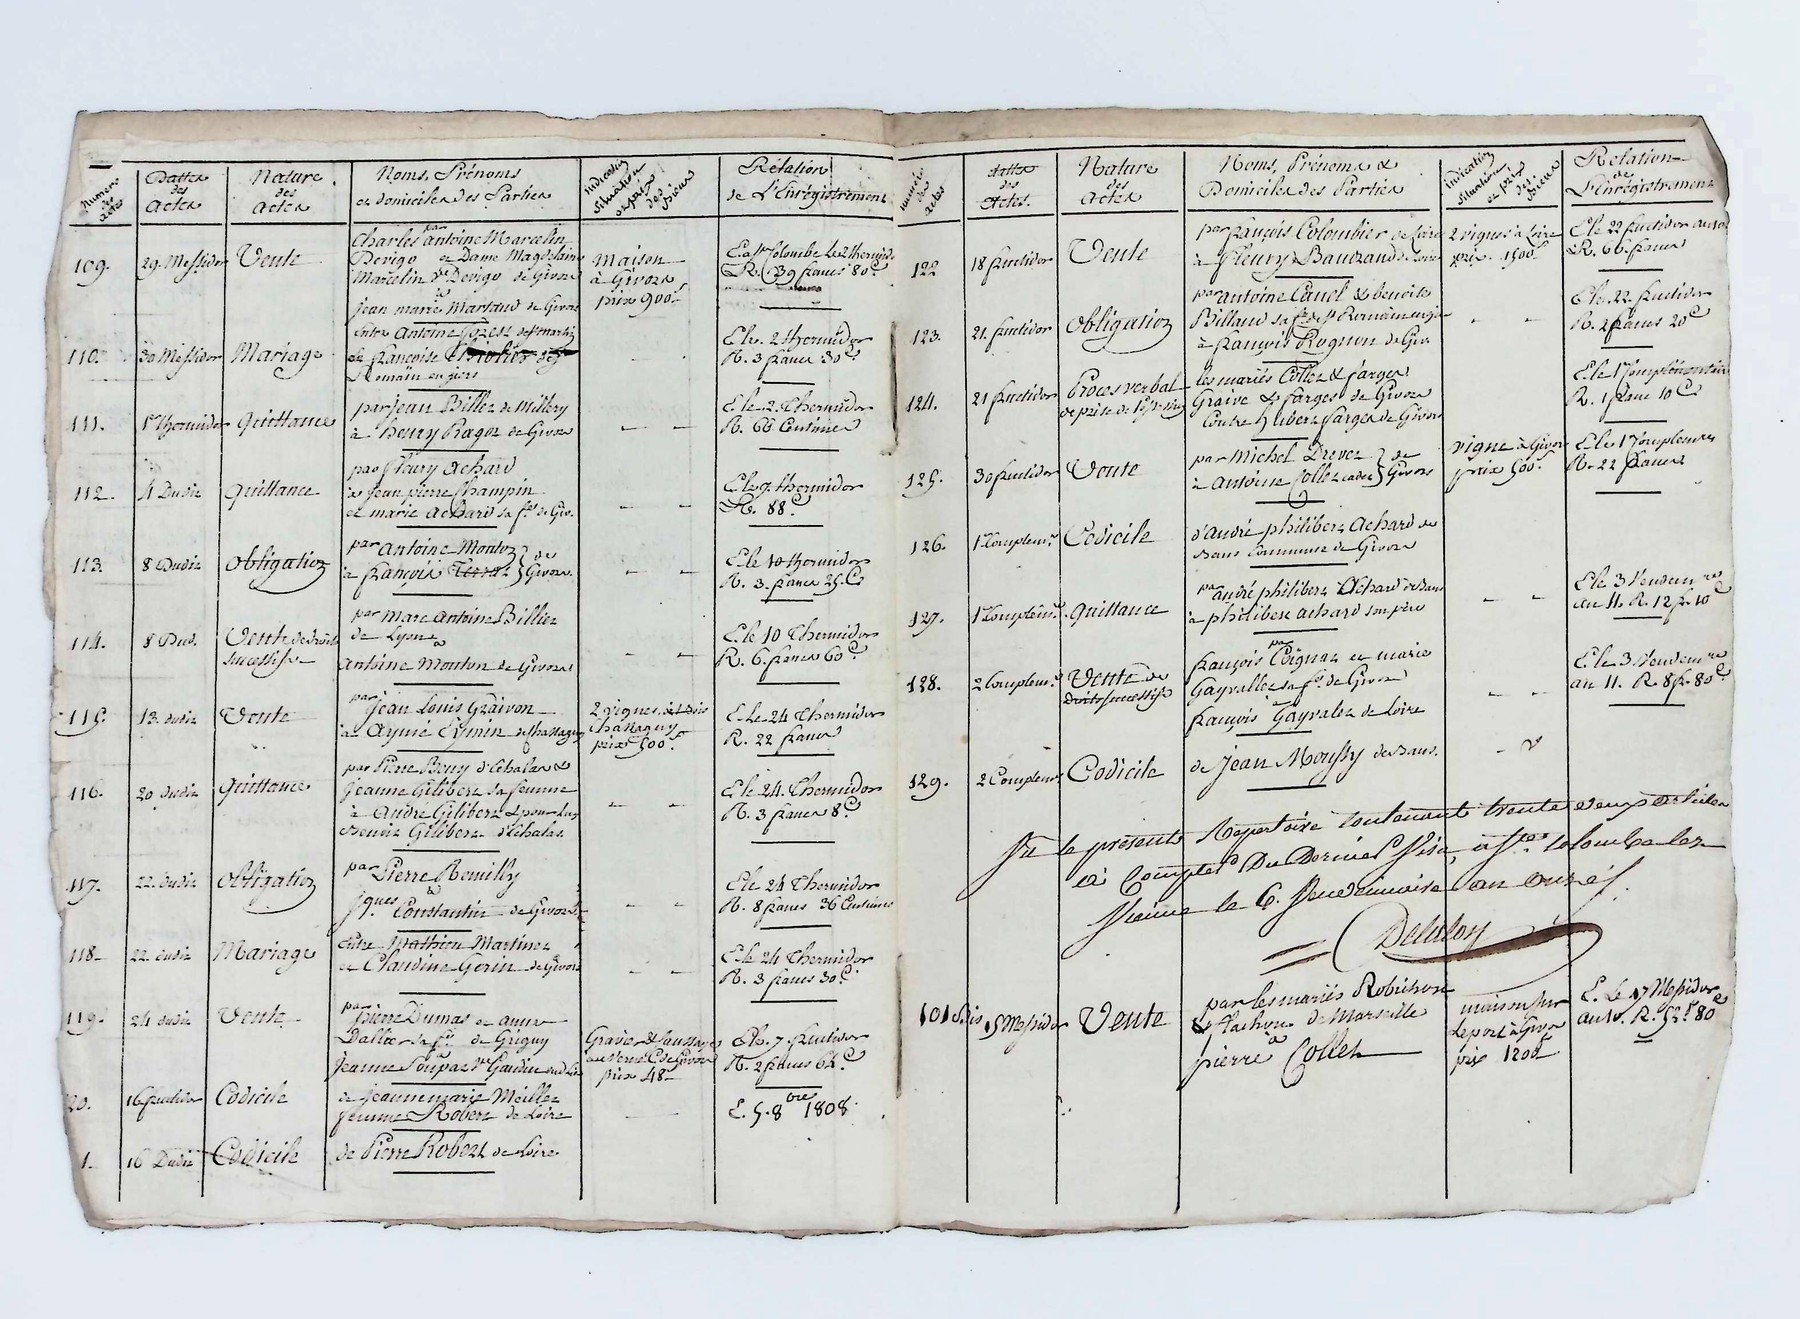 Numéro des actes
Dattes des Actes
Nature des actes
Noms, Prénoms et domiciles des Parties
Indication Situation et prix des Biens
Rélation de L'Enrégistrement
109. 29. Messidor Vente
par
Charles antoine Marcelin
Devigo et Dame Magdelaine
Marcelin Devigo de Givors
à
jean marie Martaud de Givors
Maison
à Givors
prix 900.
E. a Ste Colombe le 2 thermidor
R. 39 francs 80 c
110. 30 Messidor Mariage
Entre Antoine
et françoise
Romain en jiers
E. le 2 thermidor
R. 3 francs 30 c
111. 1er thermidor Quittance
par jean Billez de Millery
à henry Ragot de Givors
E. le 2. Thermidor
R. 66 Centimes
112. 4 Dudit quittance
par fleury Achard
à Jean pierre Champin
et marie achard sa fe de Giv.
E. le 9. thermidor
R. 88 c
113. 8 Dudit Obligation
par antoine Mouton
à françois Terrat } de Givors.
E. le 10 thermidor
R. 3. francs 25. C
114. 8 Dud. Vente de droits
successifs
par Marc Antoine Billiez
de Lyon
à
Antoine Mouton de Givors
E. le 10 Thermidor
R. 6. francs 60 c
115. 13. dudit Vente
par Jean Louis Graivon
à Aymé Eymin de Chassagny
2 vignes
Chassagny
prix 500 f
E. le 24 Thermidor
R. 22 francs
116. 20 dudit Quittance
par Pierre Bony d'Echalas &
Jeanne Gilibert sa femme
à André Gilibert
Benoit Gilibert d'Echalas.
E. le 24. Thermidor
R. 3 francs 8 c
117. 22. dudit Obligation
par Pierre Remilly
à
jques. Constantin de Givors
E. le 24 Thermidor
R. 8 francs 36 Centimes
118- 22. dudit Mariage
entre Mathieu Martinet
et Claudine Gerin de Givors
E. le 24 Thermidor
R. 3 francs 30 c
119. 24 dudit Vente
par
pierre Dumas et anne
Dallor sa fe de Grigny
à
Jeanne Soupat ve Gaudin
Gravier &
prix 48
E. le 7 fructidor
R. 2 francs 64 c
20. 16 fructidor Codicile
de Jeanne marie Meillet
femme Robert de Loire
E. 5. 8bre 1808.
1. 16 Dudit Codicile
de Pierre Robert de Loire
numéro des actes
dattes des Actes.
Nature des actes
Noms, Prénoms & Domiciles des Parties
Indication situation et prix des Biens
Relation de L'Enrégistrement
122 18 fructidor Vente
par françois Colombier de Loire
à fleury Bauzand de Loire
2 vignes à Loire
prix. 1500 f
E. le 22 fructidor an 10
R. 66 francs
123. 21. fructidor obligation
par antoine Canel & benoite
Billand sa fe de St Romain en jier
à françois Rognon de Giv.
E. le 22. fructidor
R. 2 francs 20 c
124. 21 fructidor Proces verbal
les mariés Collet & farges
Graive & farges de Givors
Contre hubert farges de Givors
R. 1 franc 10 C
125. 30 fructidor Vente
par Michel Drevet
à antoine Collet cadet } de Givors
vigne à Givors
prix 500 f
R. 22 francs
126. 1 Complemre Codicile
d'andré philibert achard de
Bans commune de Givors
127. 1 Complemre quittance
par andré philibert Achard de Bans
à philibert achard son père
E. le 3 Vendemre
an 11. R. 12 fr. 10 c
128. 2 Complemre Vente de
Droits successifs
par
françois Coignat et marie
Gayvallet sa fe de Givors
à
françois Gayvalet de Loire
E. le 3 Vendemre
an 11. R. 8 fr. 80 c
129. 2 Complemre Codicile
de Jean Moussy de Bans.
Vu le présent Répertoire contenant trente deux articles
à Compter Du Dernier Visa, à Ste Colombe lez
Vienne le 6. Vendemiaire an onze
101 bis 15 Messidor Vente
par les mariés Robichon
& flachon de Marseille
à
pierre Collet
maison sur
Le port à Givors
prix 1200 f
E. Le 17 Messidor
an 10. R. 52 f 80 c